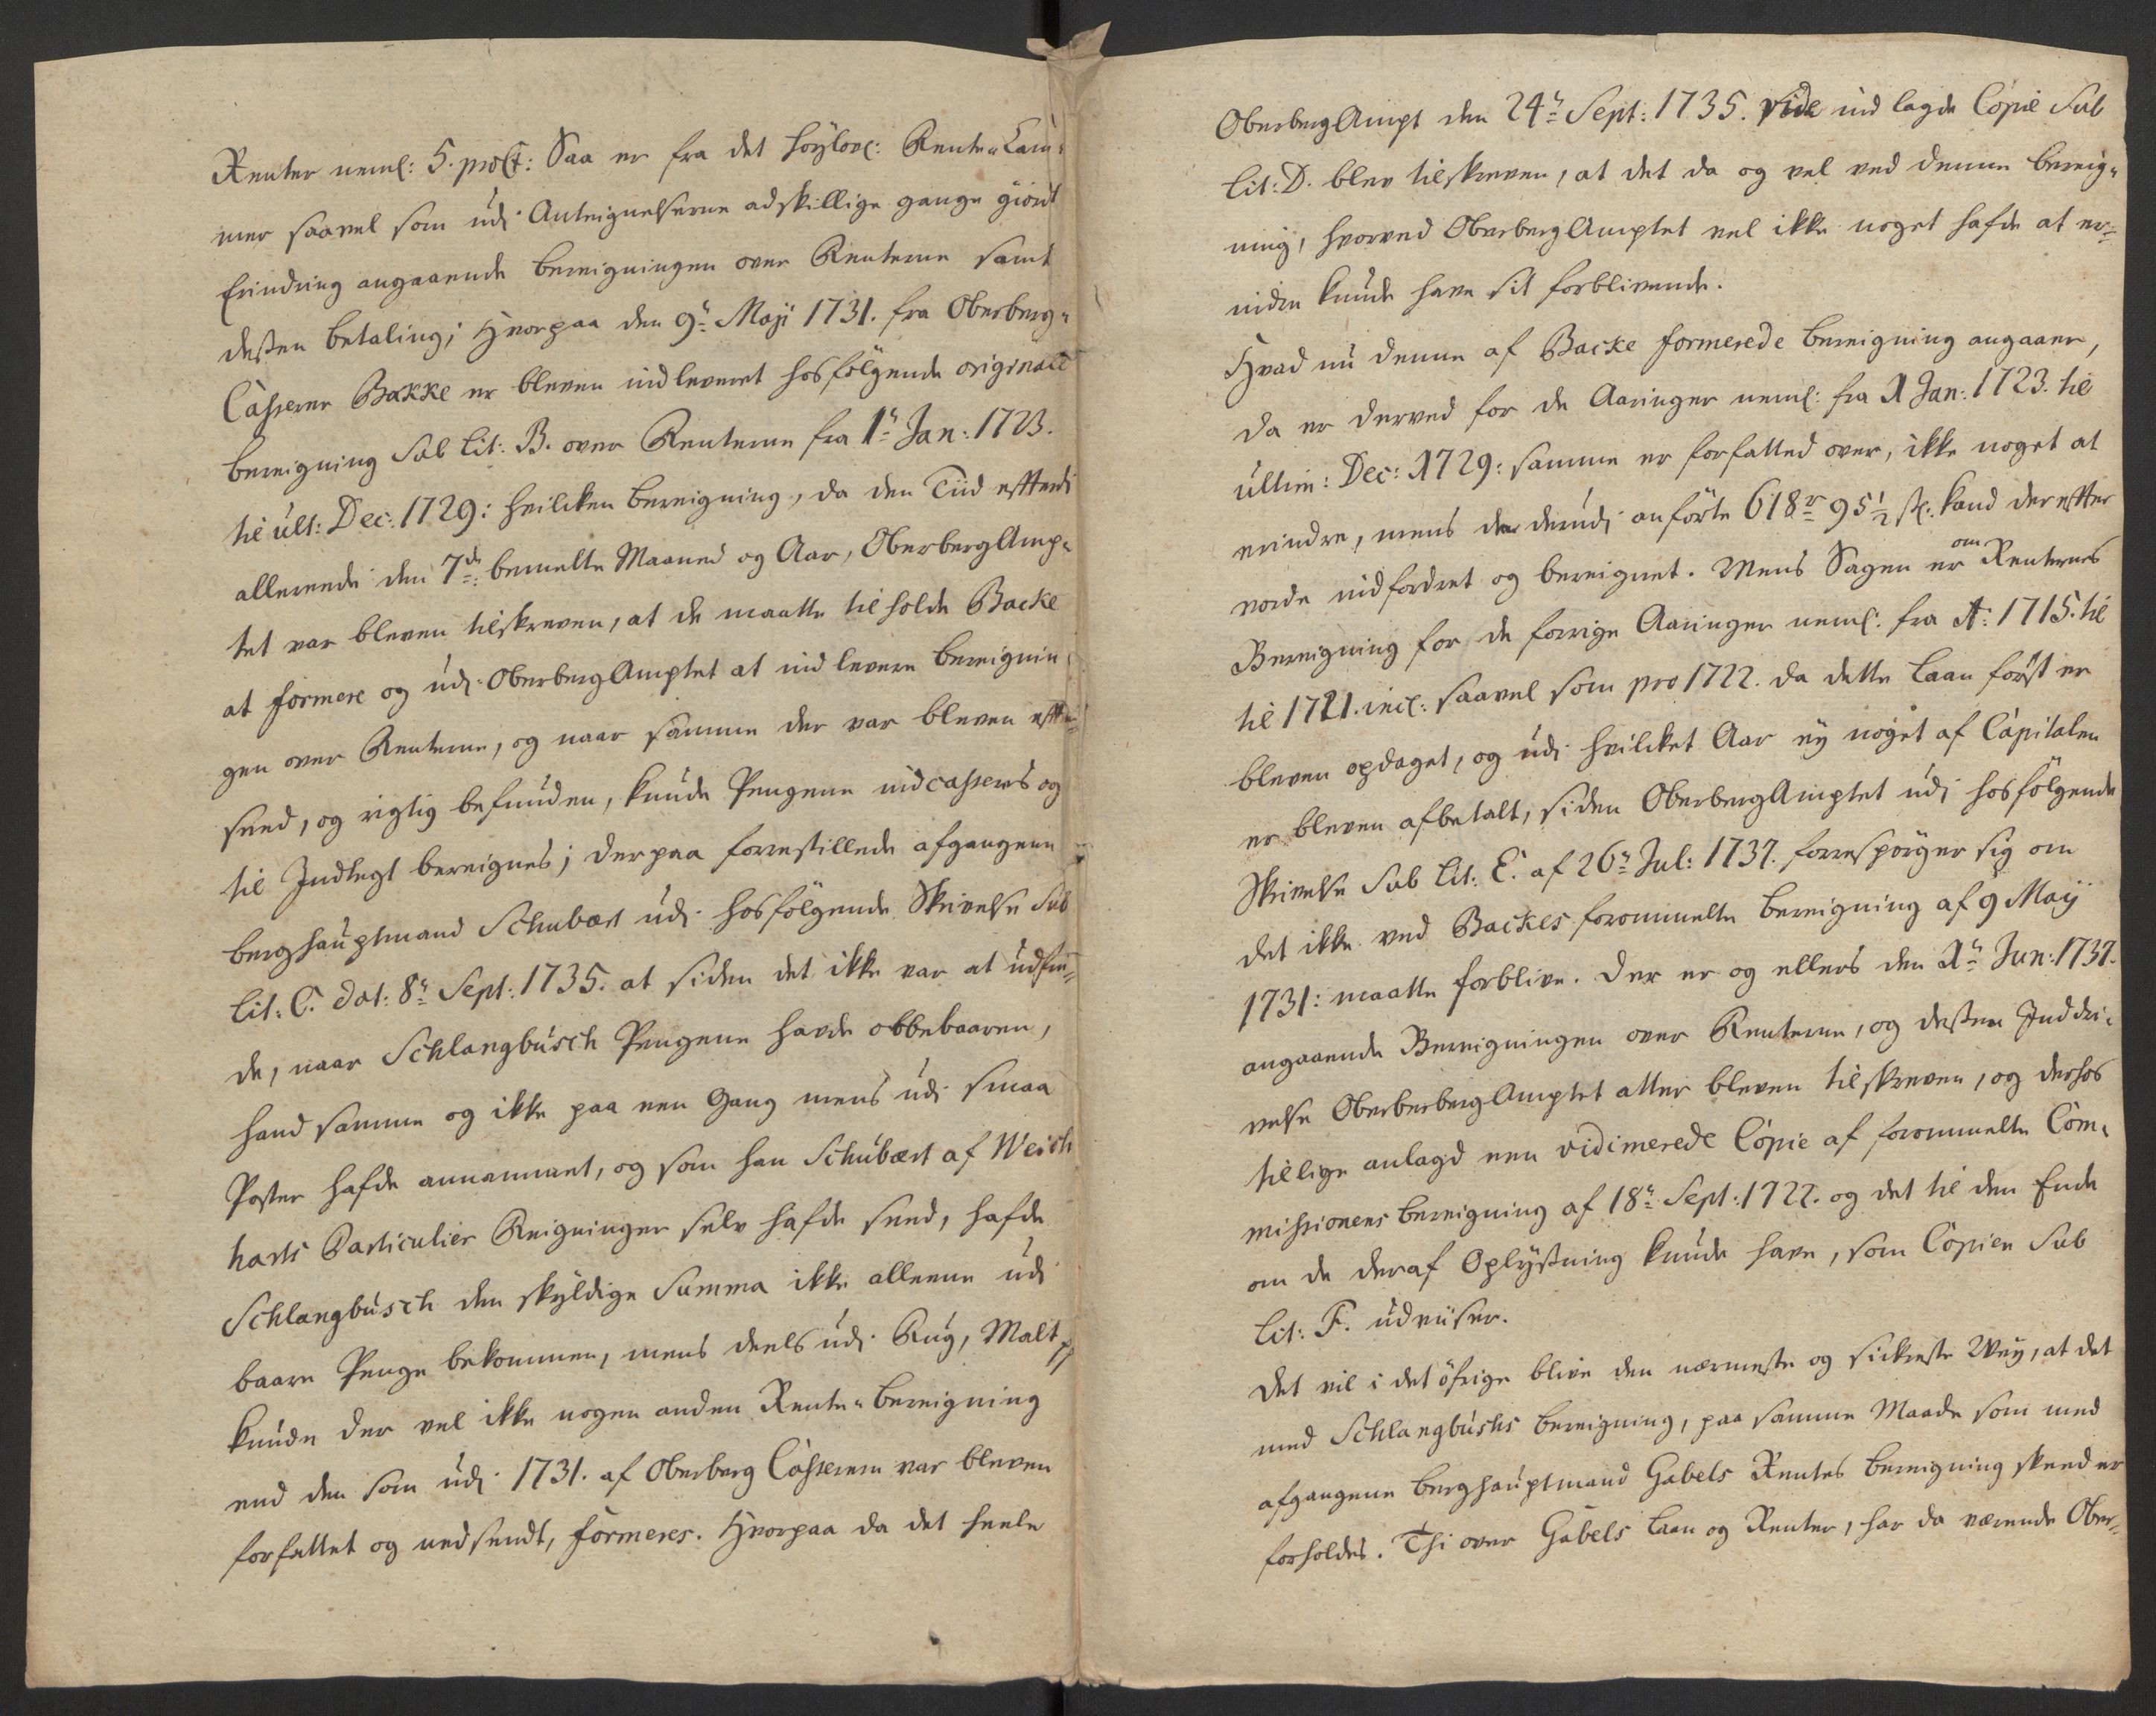 Renter neml: 5. proCt: Saa er fra det höylovl: Rente-Cam-
mer saavel som udj Antegnelserne adskillige gange giordt
Erindring angaaende beregningen over Renterne samt
desten betaling; Hvorpaa den 9de Maji 1731. fra Oberberg-
Casserer Bakke er bleven indleveret hosfölgende original
beregning Sub Lit: B. over Renterne fra 1te Jan: 1723.
til ult: Dec: 1729: hvilcken beregning, da den Tiid efftterdi
allereede den 7de bemelte Maaned og Aar, OberbergAmp-
tet var bleven tilskreven, at de maatte tilholde Backe
at formere og udj OberbergAmptet at indlevere beregnin-
gen over Renterne, og naar samme der var bleven effter-
seed, og rigtig befunden, kunde Pengene indcasseres og
til Indtegt beregnes; derpaa forrestillede afgangene
berghauptmand Schubart udj hosfölgende Skrivelse Sub
Lit: C. dat: 8te Sept: 1735. at siden det ikke var at udfin-
de, naar Schlangbusch Pengene havde obbebaaren,
hand samme og ikke paa een Gang mens udj smaa
Poster hafde annammet, og som han Schubart af Weich
harts Particulier Regninger selv hafde seed, hafde
Schlangbusch den skyldige Summa ikke alleene udj
baare Penge bekommen, mens deels udj Rug, Malt pp
kunde der vel ikke nogen anden Rente-beregning
end den som udj 1731. af Oberberg Casseren var bleven
forfattet og nedsendt, formeres. Hvorpaa da det heele
OberbergAmpt den 24de Sept: 1735. vide indlagde Copie Sub
Lit: D. blev tilskreven, at det da og vel ved denne bereig-
ning, hvorved OberbergAmptet vel ikke noget hafde at er-
indre kunde have sit forblivende.
Hvad nu denne af Backe formerede beregning angaaer,
da er derved for de Aaringer neml: fra 1 Jan: 1723. til
ultim: Dec: 1729: samme er forfatted over, ikke noget at
erindre, mens de derudj anförte 618 r 95 1/2 sk: kand dereffter
vorde indfordret og beregnet. Mens Sagen er om Renternes
Beregning for de forrige Aaringer neml: fra A: 1715. til
til 1721. incl: saavel som pro 1722. da dette Laan först er
bleven opdaget, og udj hvilcket Aar ey noget af Capitalen
er bleven afbetalt, siden OberbergAmptet udj hosfölgende
Skrivelse Sub Lit: E. af 26de Jul: 1737. forrespörger sig om
det ikke ved Backes forommelte beregning af 9 Maij
1731: maatte forblive. Der er og ellers den 1te Jun: 1737.
angaaende Beregningen over Renterne, og desten Inddri-
velse OberberbergAmptet atter bleven tilskreven, og derhos
tillige anlagd een vidimerede Copie af forommelte Com-
missionens beregning af 18de Sept: 1722. og det til den Ende
om de deraf Oplysning kunde have, som Copien Sub
Lit: F. udviiser.
Det vil i det öfrige blive den nærmeste og sickreste Wey, at det
med Schlangbuschs beregning, paa samme Maade som med
afgangene berghauptmand Gabels Rentes beregning skeed er
forholdes. Thi over Gabels Laan og Renter, har da værende Ober-